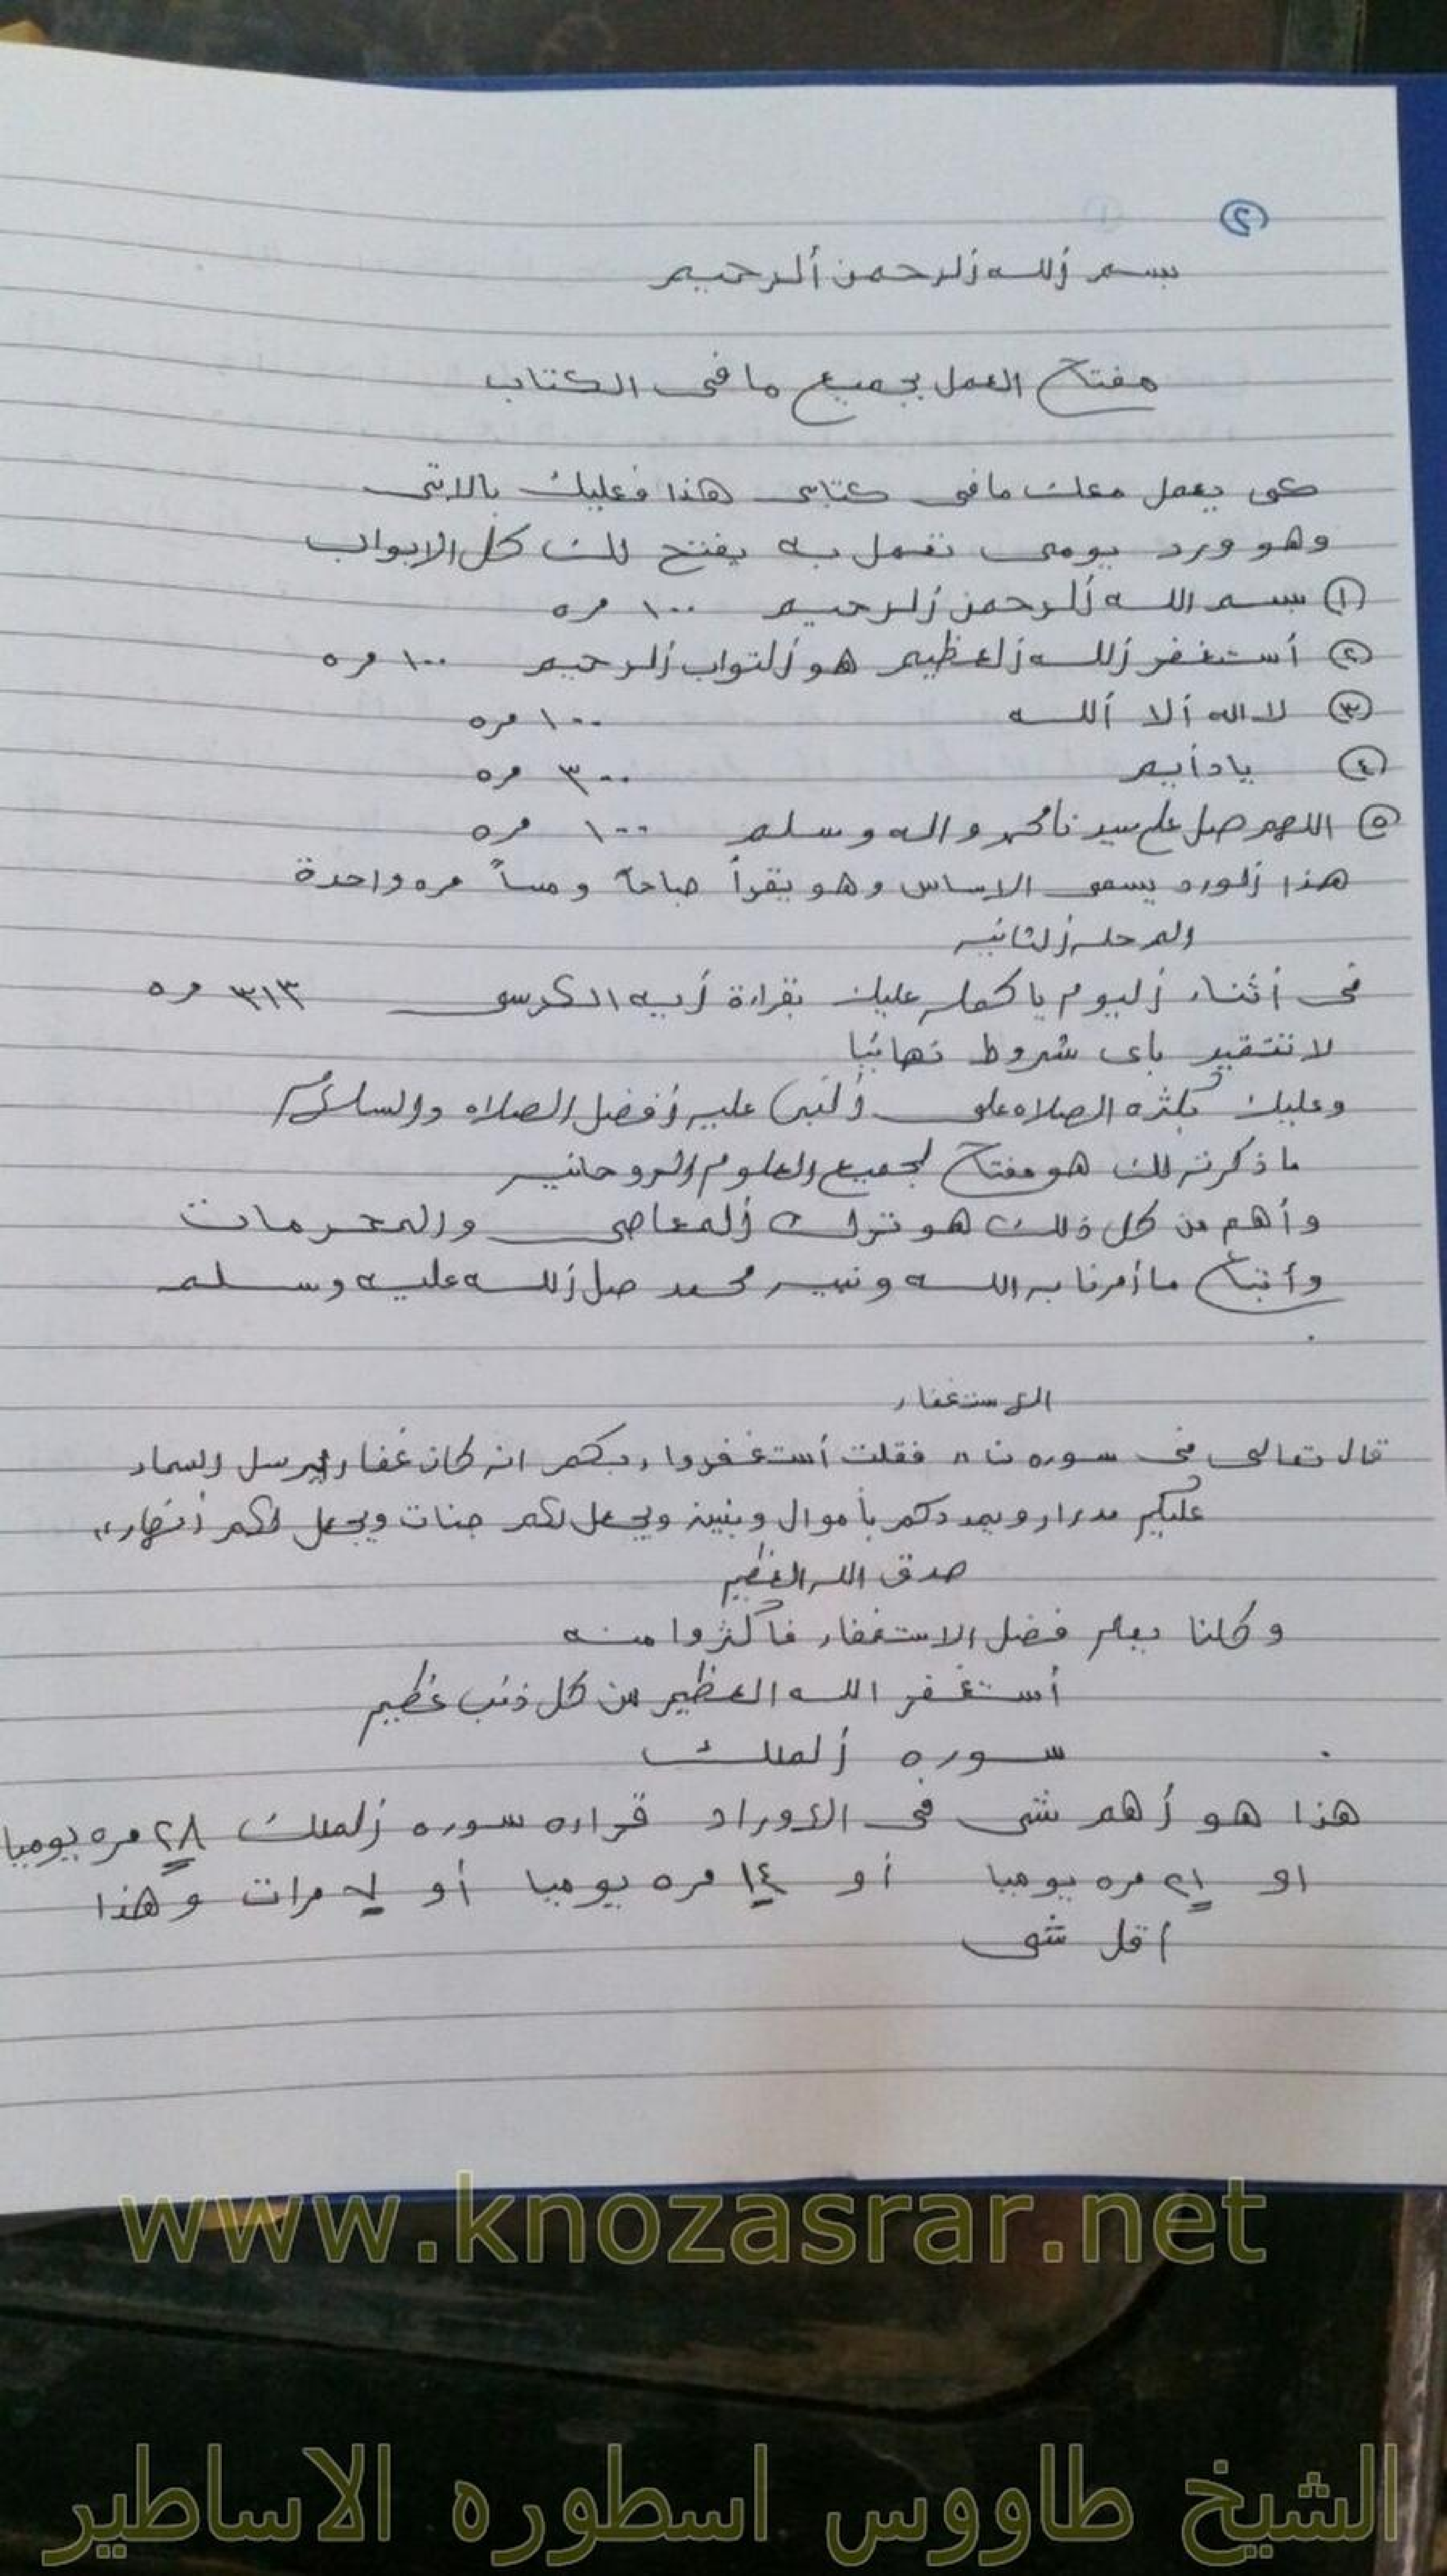 ٢
بسم الله الرحمن الرحيم
مفتاح العمل بجميع ما فى الكتاب
كى يعمل معك ما فى كتابى هذا فعليك بالاتى
وهو ورد يومى تعمل به يفتح لك كل الابواب
١ بسم الله الرحمن الرحيم ١٠٠ مره
٢ أستغفر الله العظيم هو التواب الرحيم ١٠٠ مره
٣ لا اله ألا ألله ١٠٠ مره
٤ يا دأيم ٣٠٠ مره
٥ اللهم صل على سيدنا محمد واله وسلم ١٠٠ مره
هذا الورد يسمى الاساس وهو يقرأ صباحاً ومساً مره واحدة
والمرحله الثانيه
فى أثناء اليوم باكمله عليك بقرادة أيه الكرسى ٣١٣ مره
لا تتقيد باى شروط نهائيا
وعليك بكثره الصلاه على ألنبى عليه أفضل الصلاه والسلام
ما ذكرته لك هو مفتاح لجميع العلوم الروحانيه
وأهم من كل ذلك هو ترك ألمعاصى والمحرمات
وأتباع ما أمرنا به الله ونبيه محمد صل الله عليه وسلم
الاستغفار
قال تعالى فى سوره ن " فقلت أستغفروا ربكم انه كان غفارا يرسل السماء
عليكم مدرارا ويمددكم بأموال وبنين ويجعل لكم جنات ويجعل لكم أنهارا "
صدق الله العظيم
وكلنا يعلم فضل الاستغفار فاكثروا منه
أستغفر الله العظيم من كل ذنب عظيم
سوره ألملك
هذا هو أهم شى فى الاوراد قراءه سوره الملك ٢٨ مره يوميا
او ٢١ مره يوميا أو ١٤ مره يوميا أو ٧ مرات وهذا
اقل شى
www.knozasrar.net
الشيخ طاووس اسطوره الاساطير